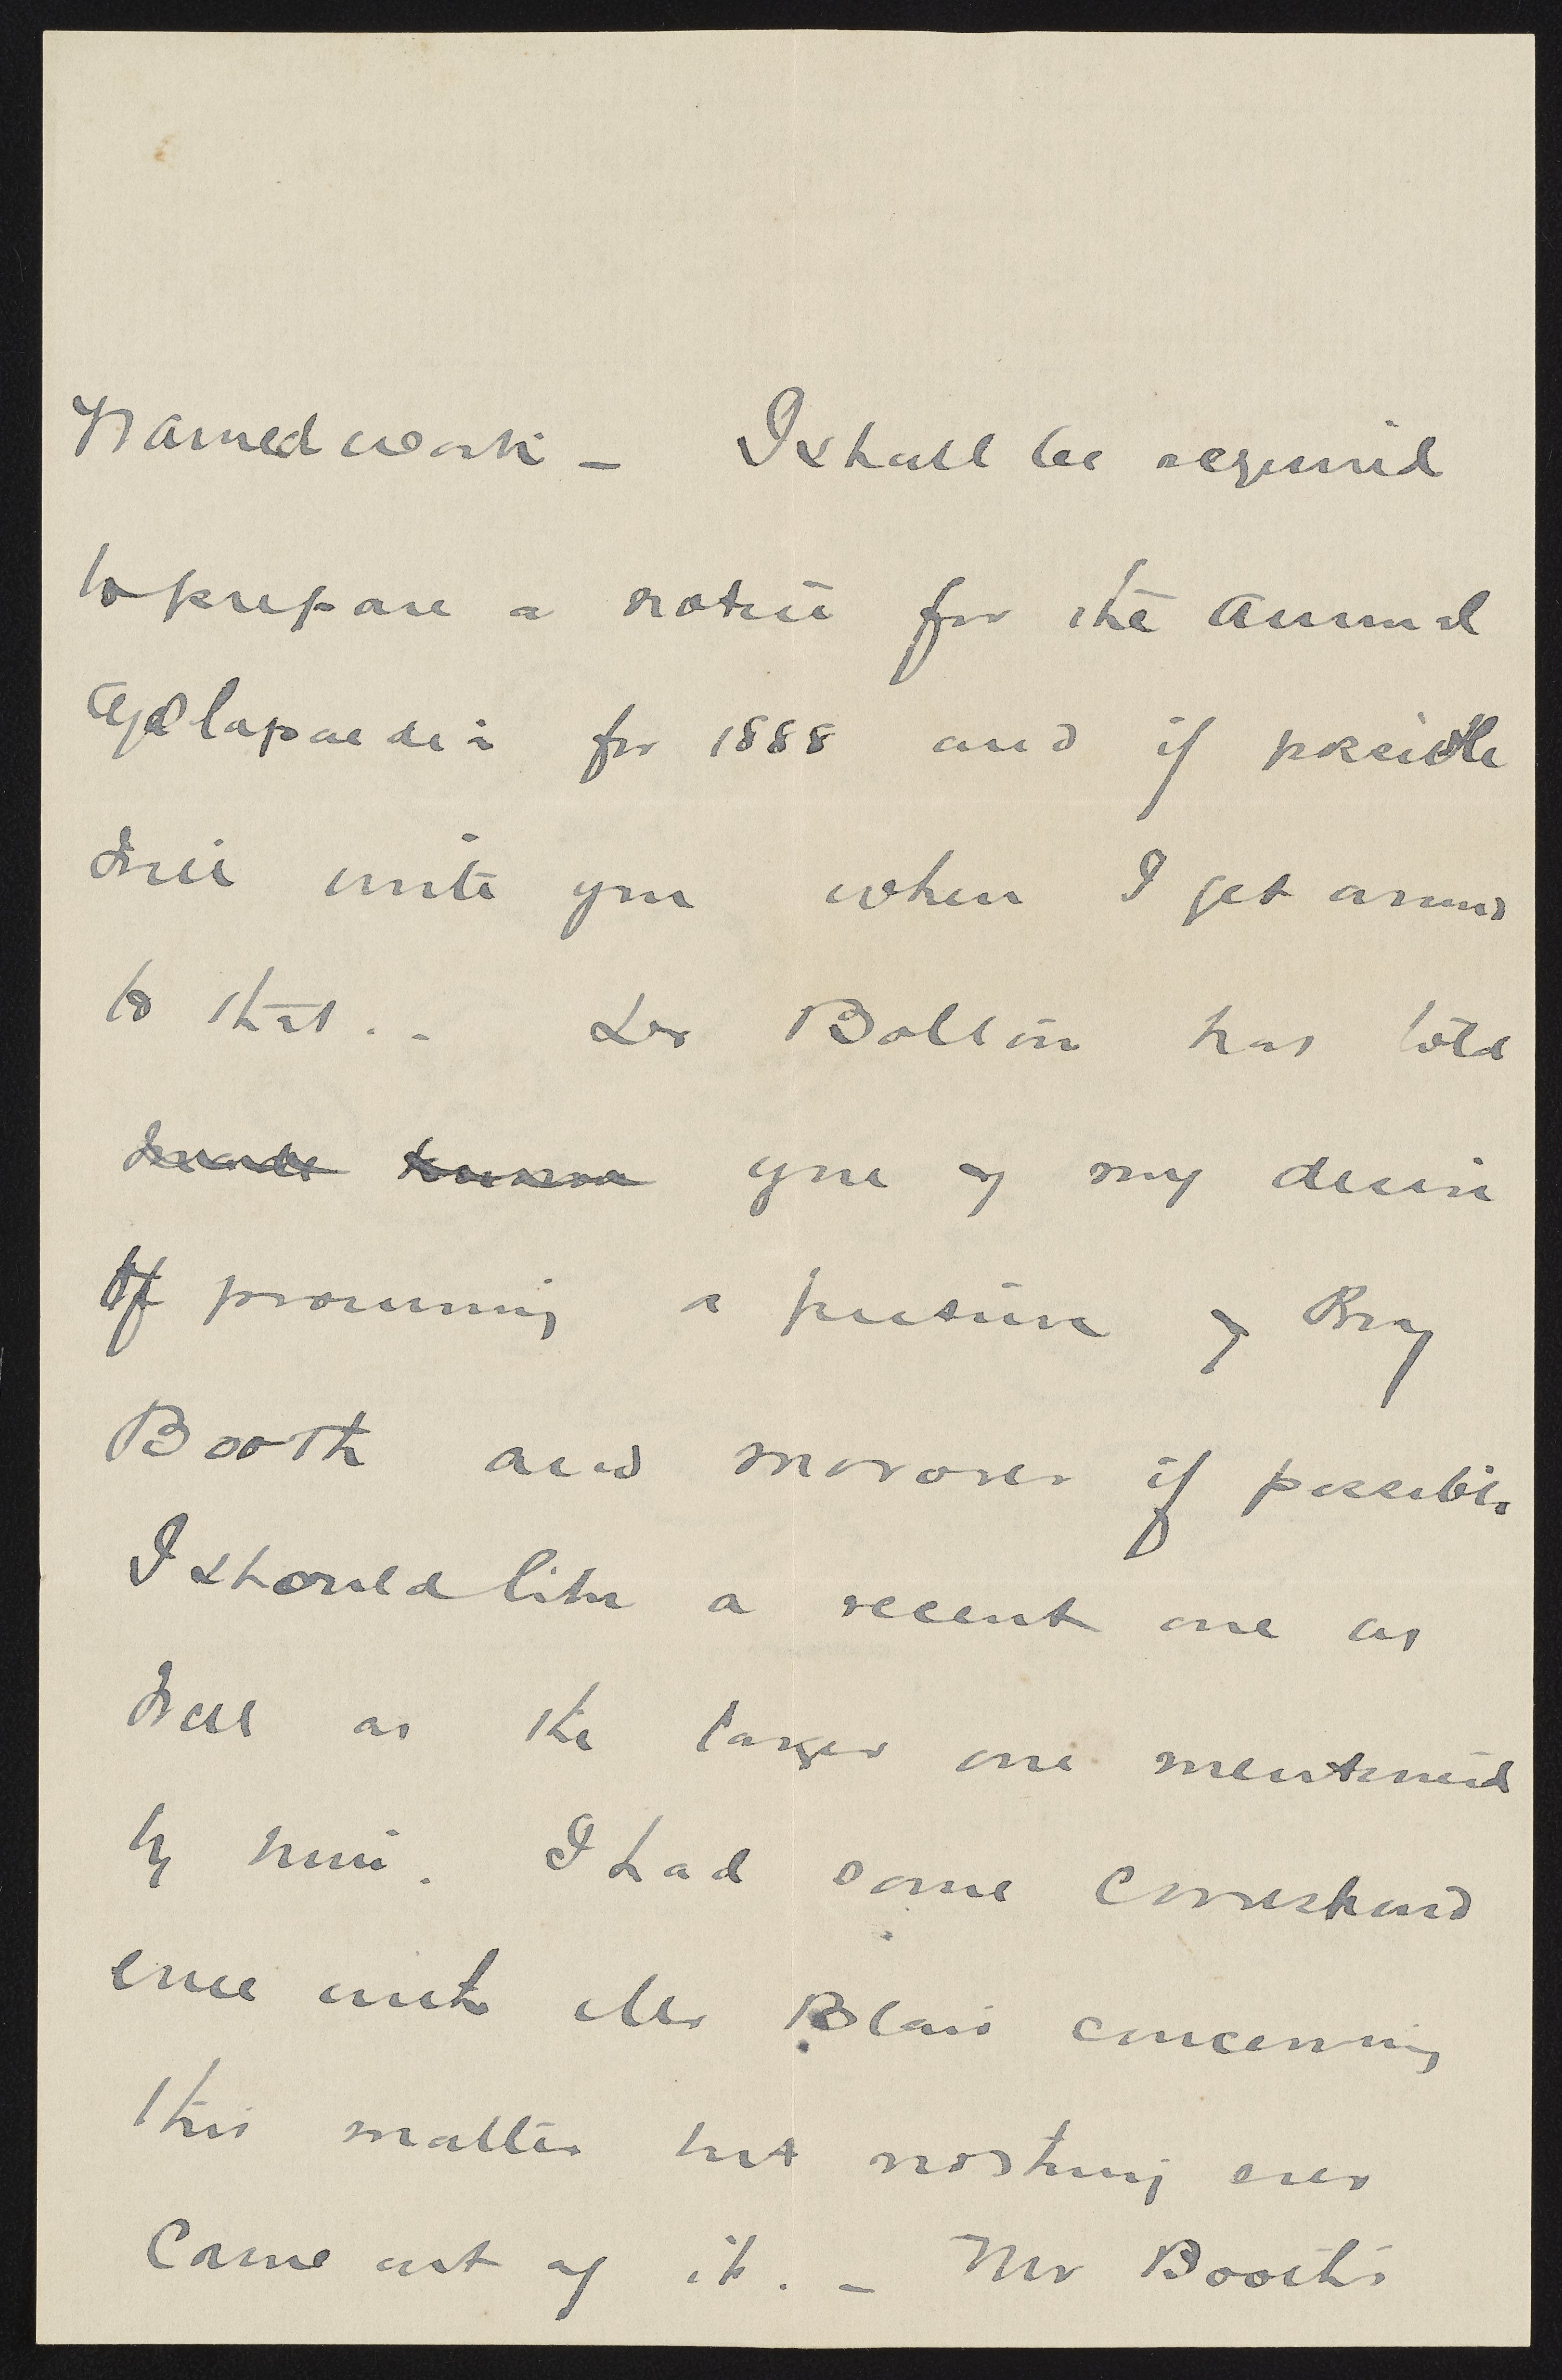 named work – I shall be required
to prepare a notice for the Annual
Cyclopaedia for 1888 and if possible
will write you when I get around
to that. – Dr Bolton has told
made known you of my desire
of procuring a picture of Prof
Booth and moreover if possible
I should like a recent one as
well as the larger one mentioned
by him. I had some correspond
ence with Mr Blair concerning
this matter but nothing ever
came out of it. – Mr Booth's